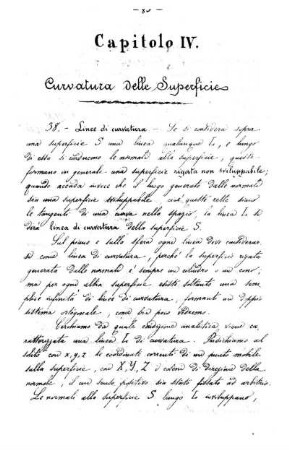 Capitolo IV.
Curvatura delle Superficie
38. – Linee di curvatura – Se si considera sopra
una superficie S una linea qualunque L, e lungo
di essa si conducono le normali alla superficie, queste
formano in generale una superficie rigata non sviluppabile;
quando accada invece che il luogo generato dalle normali
sia una superficie sviluppabile così queste rette siano
le tangenti di una curva nello spazio, la linea L si
dirà linea di curvatura della superficie S.
Sul piano e sulla sfera ogni linea deve considerar-
si come linea di curvatura, perchè la superficie rigata
generata dalle normali è sempre un cilindro o un cono,
ma per ogni altra superficie esiste soltanto una sem-
plice infinità di linee di curvatura, formanti un doppio
sistema ortogonale, come ora può vedersi.
Cerchiamo da quale condizione analitica viene ca-
ratterizzata una linea L di curvatura. Indichiamo al
solito con x, y, z le coordinate correnti di un punto mobile
sulla superficie, con X, Y, Z i coseni di direzione della
normale, il cui senso positivo sia stato fissato ad arbitrio.
Le normali alla superficie S lungo la sviluppano,